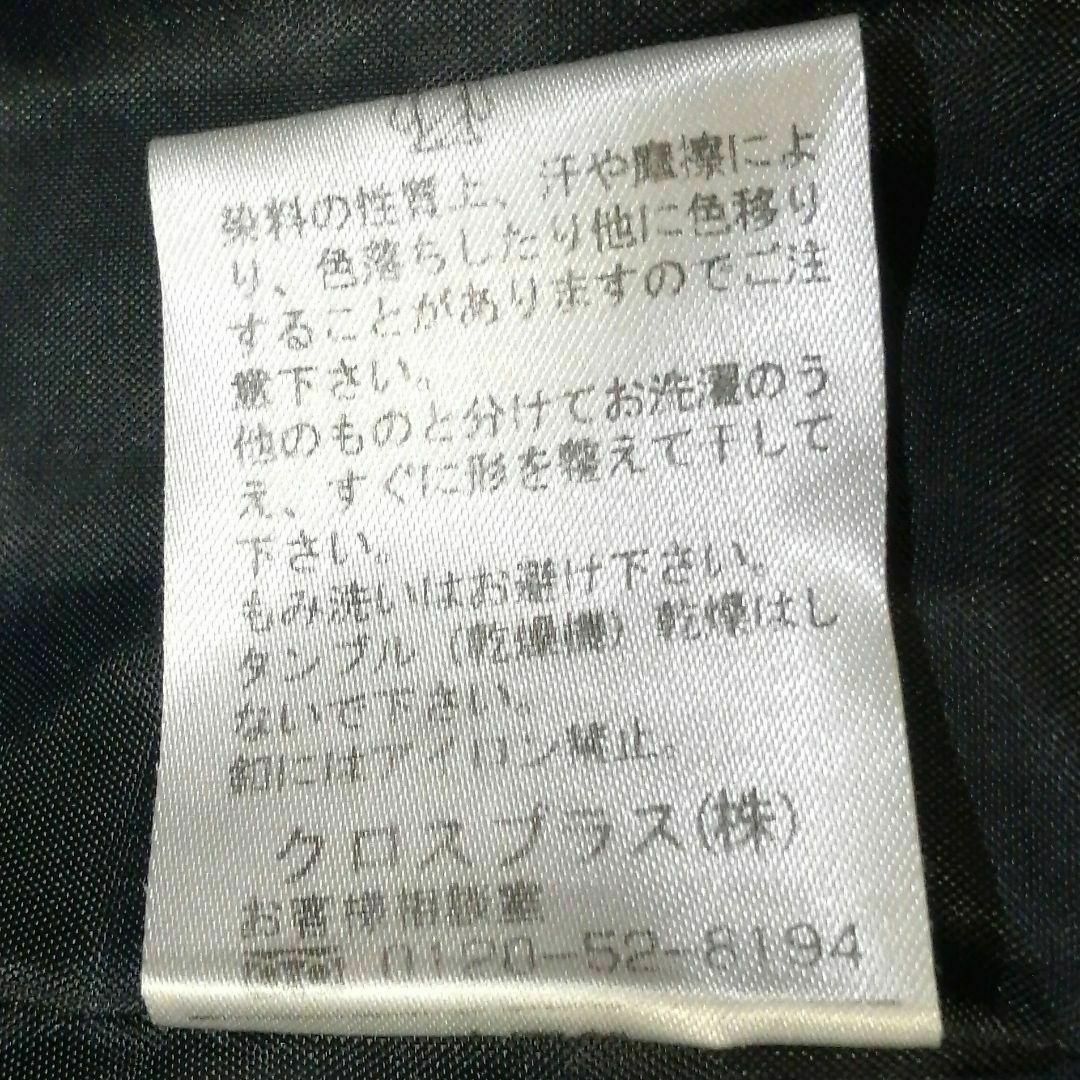 染料の性質上、汗や摩擦によ
り、色落ちしたり他に色移り
することがありますのでご注
意下さい。
他のものと分けてお洗濯のう
え、すぐに形を整えて干して
下さい。
もみ洗いはお避け下さい。
タンブル(乾燥機)乾燥はし
ないで下さい。
釦にはアイロン禁止。
クロスプラス(株)
お客様相談室
0120-52-8194